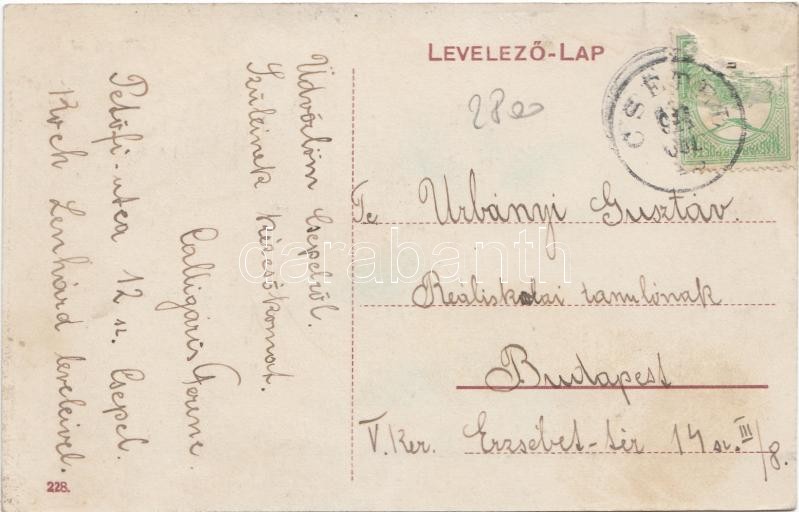 LEVELEZŐ-LAP
2800
CSEPEL
Te
Urbányi Gusztáv
Reáliskolai tanulónak
Budapest
V. Ker. Erzsébet-tér 14 sz. III/8.
Üdvözlöm Csepelről.
Szüleinek kézcsókomat.
Calligaris Ferenc.
Petőfi-utca 12 sz. Csepel.
Koch Lenhárd leveleivel.
228.
carabanth